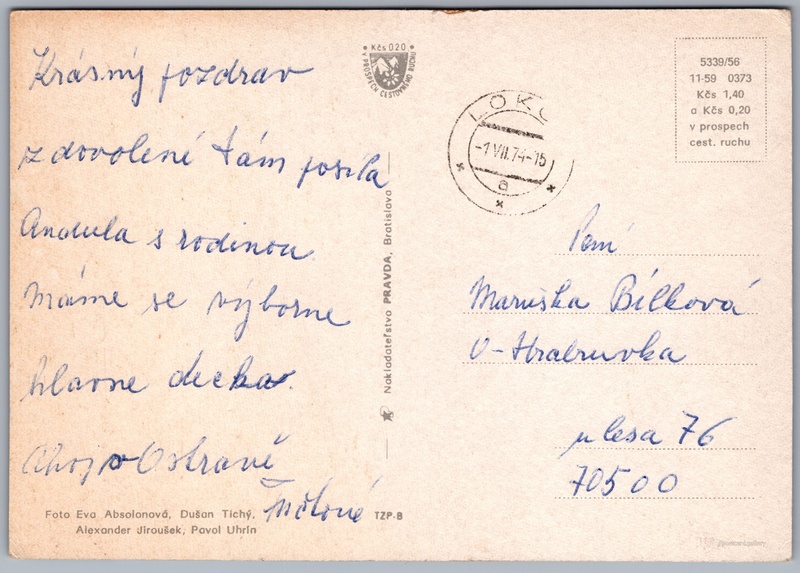 Krásný pozdrav
z dovolené Vám posílá
Andula s rodinou.
Máme se výborne
hlavne decka.
Ahoj v Ostravě
Kčs 0,20
V PROSPECH CESTOVNÉHO RUCHU
Nakladateľstvo PRAVDA, Bratislava
Foto Eva Absolonová, Dušan Tichý,
Alexander Jiroušek, Pavol Uhrin
TZP-B
LOK
-1.VII.74-15
a
5339/56
11-59 0373
Kčs 1,40
a Kčs 0,20
v prospech
cest. ruchu
Paní
Maruška Bílková
O-Hrabuvka
u lesa 76
70500